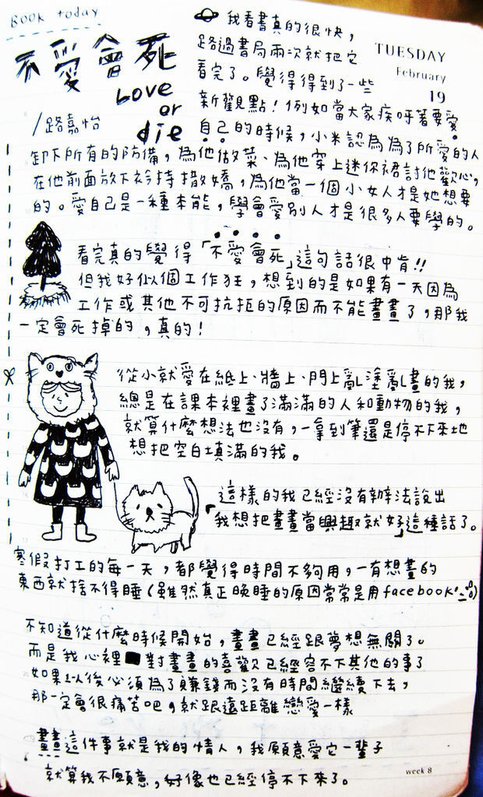 BOOK today
不愛會死
Love
or
die
/路嘉怡
TUESDAY
February
19
我看書真的很快，
路過書局兩次就把它
看完了。覺得得到了一些
新觀點！例如當大家疾呼著要愛
自己的時候，小米認為為了所愛的人
卸下所有的防備，為他做菜、為他穿上迷你裙討他歡心，
在他前面放下衿持撒嬌，為他當一個小女人才是她想要
的。愛自己是一種本能，學會愛別人才是很多人要學的。
看完真的覺得「不愛會死」這句話很中肯!!
但我好似個工作狂，想到的是如果有一天因為
工作或其他不可抗拒的原因而不能畫畫了，那我
一定會死掉的，真的！
從小就愛在紙上、牆上、門上亂塗亂畫的我，
總是在課本裡畫了滿滿的人和動物的我，
就算什麼想法也沒有，一拿到筆還是停不下來地
想把空白填滿的我。
這樣的我已經沒有辦法說出
「我想把畫畫當興趣就好」這種話了。
寒假打工的每一天，都覺得時間不夠用，一有想畫的
東西就捨不得睡(雖然真正晚睡的原因常常是用facebook)
不知道從什麼時候開始，畫畫已經跟夢想無關了。
而是我心裡對畫畫的喜歡已經容不下其他的事了
如果以後必須為了賺錢而沒有時間繼續下去，
那一定會很痛苦吧，就跟遠距離戀愛一樣
畫畫這件事就是我的情人，我願意愛它一輩子
就算我不願意，好像也已經停不下來了。
week 8